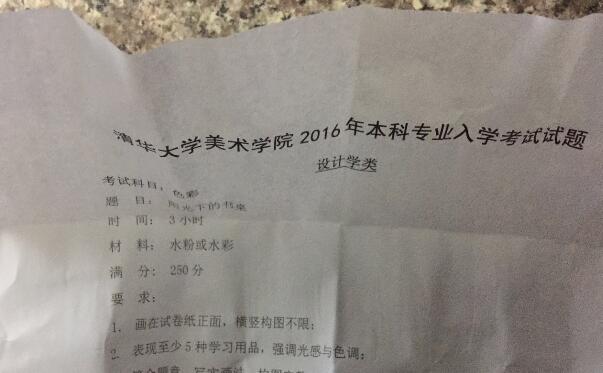 清华大学美术学院2016年本科专业入学考试试题
设计学类
考试科目：色彩
题 目：阳光下的书桌
时 间：3小时
材 料：水粉或水彩
满 分：250分
要 求：
1. 画在试卷纸正面，横竖构图不限；
2. 表现至少5种学习用品，强调光感与色调；